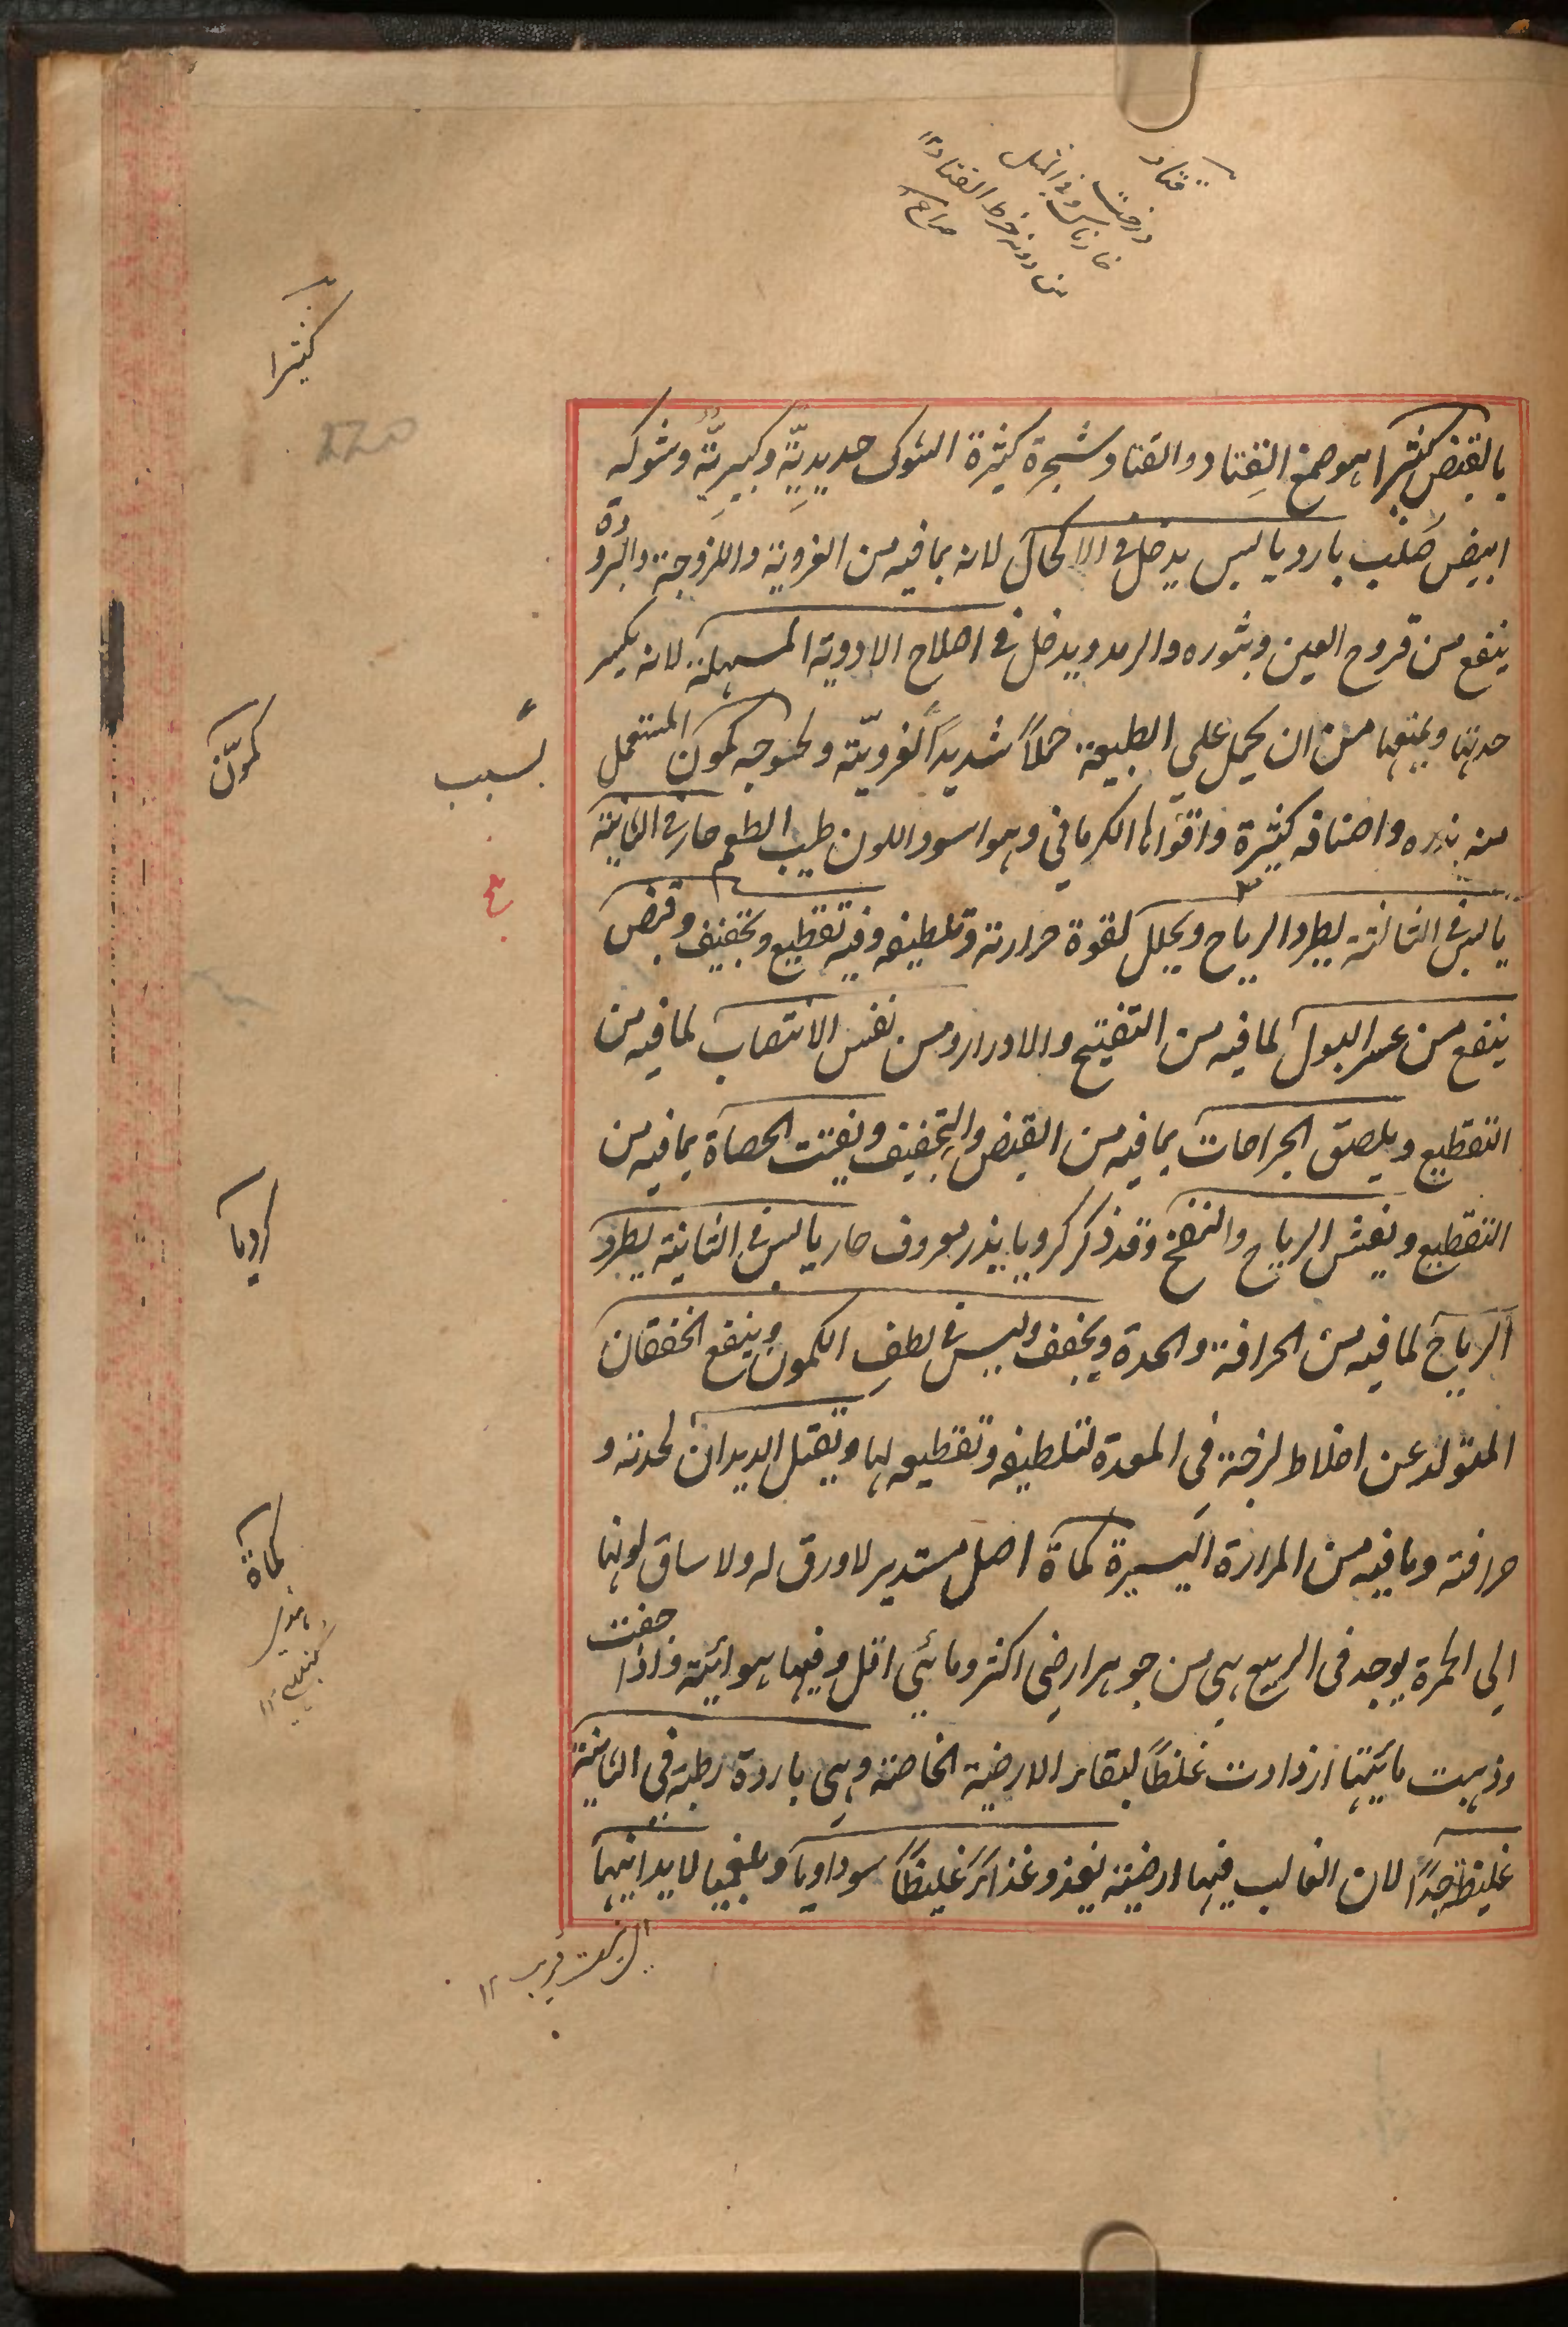 قتاد
درخت
خارناک و فی المثل
دونه خرط القتاد ۱۲
صراح
کثیرا
220
بالقبض کثیرا هو صمغ القتاد والقتاد شجرة کثیرة الشوک حدیدیّة وکبیریّة وشوکه
ابیض صلب بارد یابس یدخل فی الاکحال لانه بما فیه من الغرویة واللزوجة والبرودة
ینفع من قروح العین وبثوره والرمد ویدخل فی اصلاح الادویة المسهلة لانه یکسر
حدتها ویمنعها من ان یحمل علی الطبیعة حملاً شدیداً لغرویّته ولحوجه کمون المستعمل
بسبب
کمّون
منه بذره واصنافه کثیرة واقواها الکرمانی وهو اسود اللون طیب الطعم حار فی الثانیة
یابس فی الثالثة یطرد الریاح ویحلل لقوة حرارته وتلطیفه وفیه تقطیع وتجفیف وقبض
ینفع من عسر البول لما فیه من التفتیح والادرار ومن نفس الانتصاب لما فیه من
التقطیع ویلصق الجراحات بما فیه من القبض والتجفیف ویفتت الحصاة بما فیه من
التقطیع ویفش الریاح والنفخ وقد ذکر کرویا بذر معروف حار یابس فی الثانیة یطرد
کرویا
الریاح لما فیه من الحرافة والحدة ویجفف ولیس فی لطف الکمون وینفع الخفقان
المتولد عن اخلاط لزجة فی المعدة لتلطیفه وتقطیعه لها ویقتل الدیدان لحدته و
حرافته وما فیه من المرارة الیسیرة کماة اصل مستدیر لا ورق له ولا ساق لونها
کماة
الی الحمرة یوجد فی الربیع هی من جوهر ارضی اکثر ومائی اقل وفیها هوائیة فاذا جفت
وذهبت مائیتها ازدادت غلظاً لبقاء الارضیة الخاصة وهی باردة رطبة فی الثانیة
غلیظة جداً لان الغالب فیها ارضیة یغذو غذاءً غلیظاً سوداویا وبلغمیا لا یدانیها